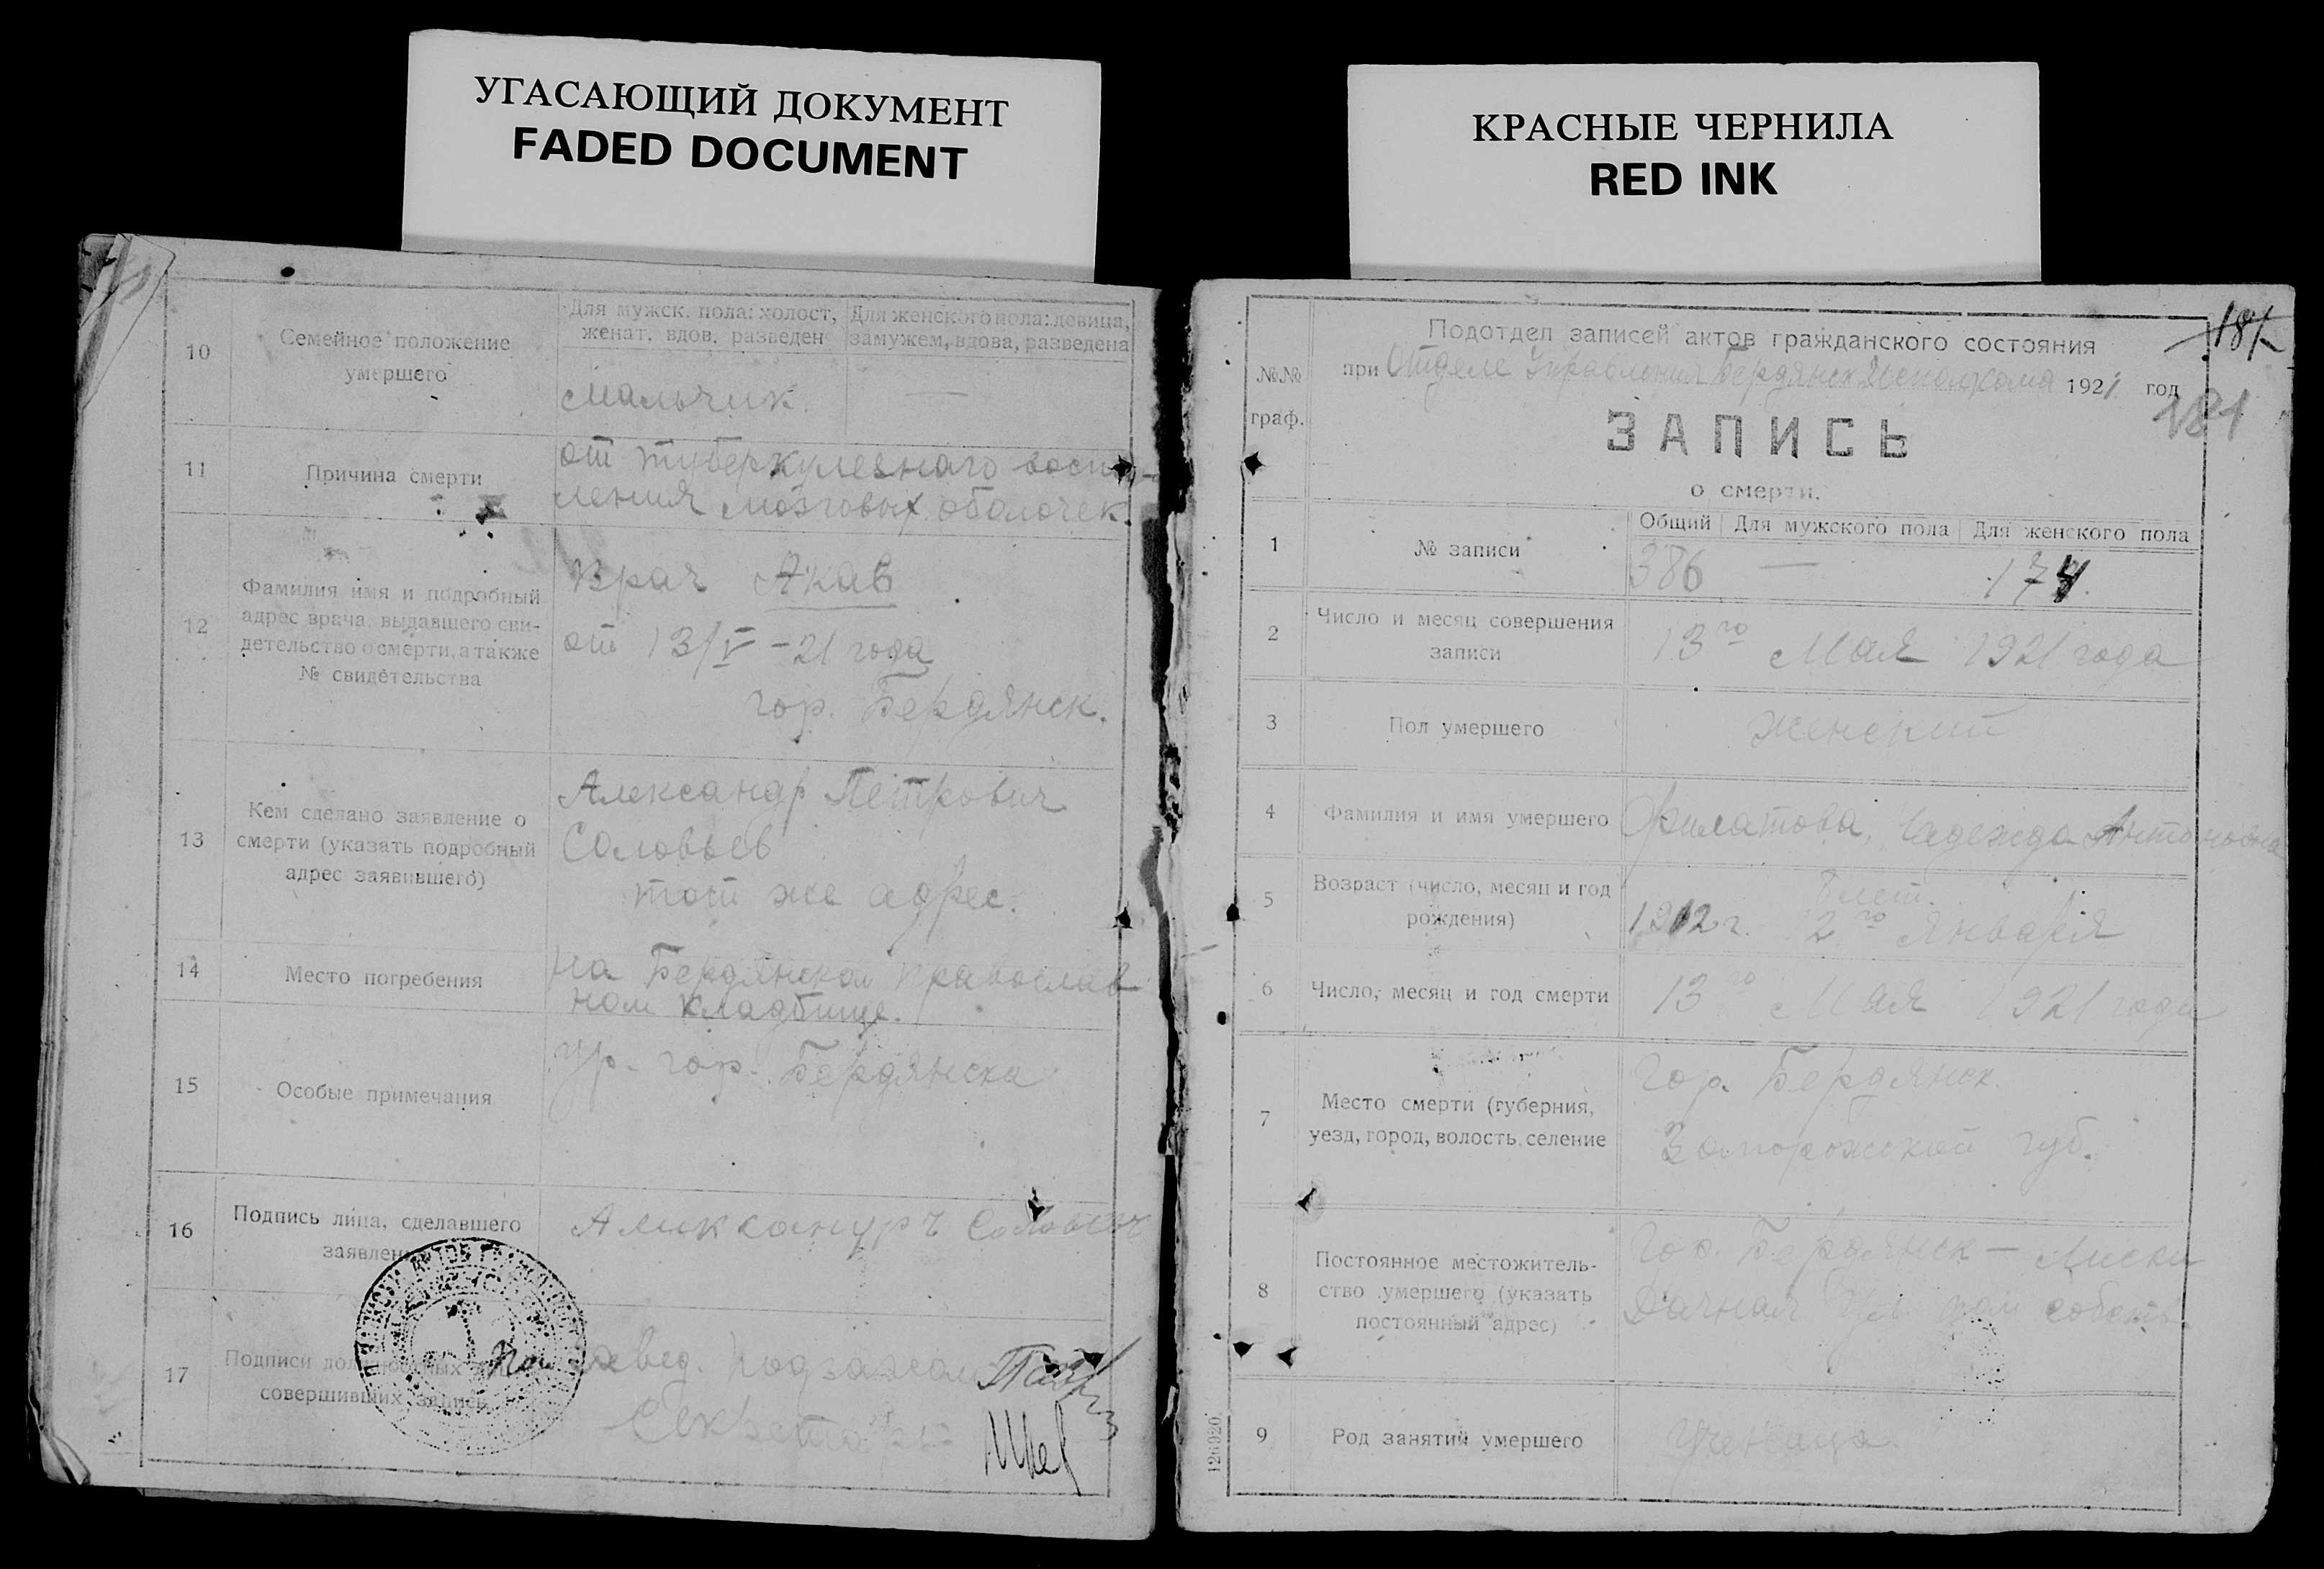 УГАСАЮЩИЙ ДОКУМЕНТ
FADED DOCUMENT
10
Семейное положение
умершего
Для мужск. пола: холост,
женат, вдов, разведен
Для женского пола: девица,
замужем, вдова, разведена
Мальчик.
—
11
Причина смерти
от туберкулезнаго воспа-
ления мозговых оболочек.
12
Фамилия имя и подробный
адрес врача, выдавшего сви-
детельство о смерти, а также
№ свидетельства
Врач Акав
от 13/V – 21 года
гор. Бердянск.
13
Кем сделано заявление о
смерти (указать подробный
адрес заявившего)
Александр Петрович
Соловьев
тот же адрес.
14
Место погребения
На Бердянском православ
ном кладбище.
15
Особые примечания
Ур. гор. Бердянска
16
Подпись лица, сделавшего
заявлен
Соловьев
17
Подписи
совершивших запись
Секретарь
КРАСНЫЕ ЧЕРНИЛА
RED INK
181
181
№№
граф.
Подотдел записей актов гражданского состояния
при Отделе Управления Бердянск Исполкома 1921 год
ЗАПИСЬ
о смерти.
1
№ записи
Общий
Для мужского пола
Для женского пола
386
—
174.
2
Число и месяц совершения
записи
13го Мая 1921 года
3
Пол умершего
женский
4
Фамилия и имя умершего
Филатова, Надежда Антоновна
5
Возраст (число, месяц и год
рождения)
8 лет.
1912 г. 12го Января
6
Число, месяц и год смерти
13го Мая 1921 года
7
Место смерти (губерния,
уезд, город, волость, селение
Гор. Бердянск.
Запорожской губ.
8
Постоянное местожитель-
ство умершего (указать
постоянный адрес)
Гор. Бердянск – Лиски
Дачная ул. дом собств.
9
Род занятий умершего
Ученица.
126920